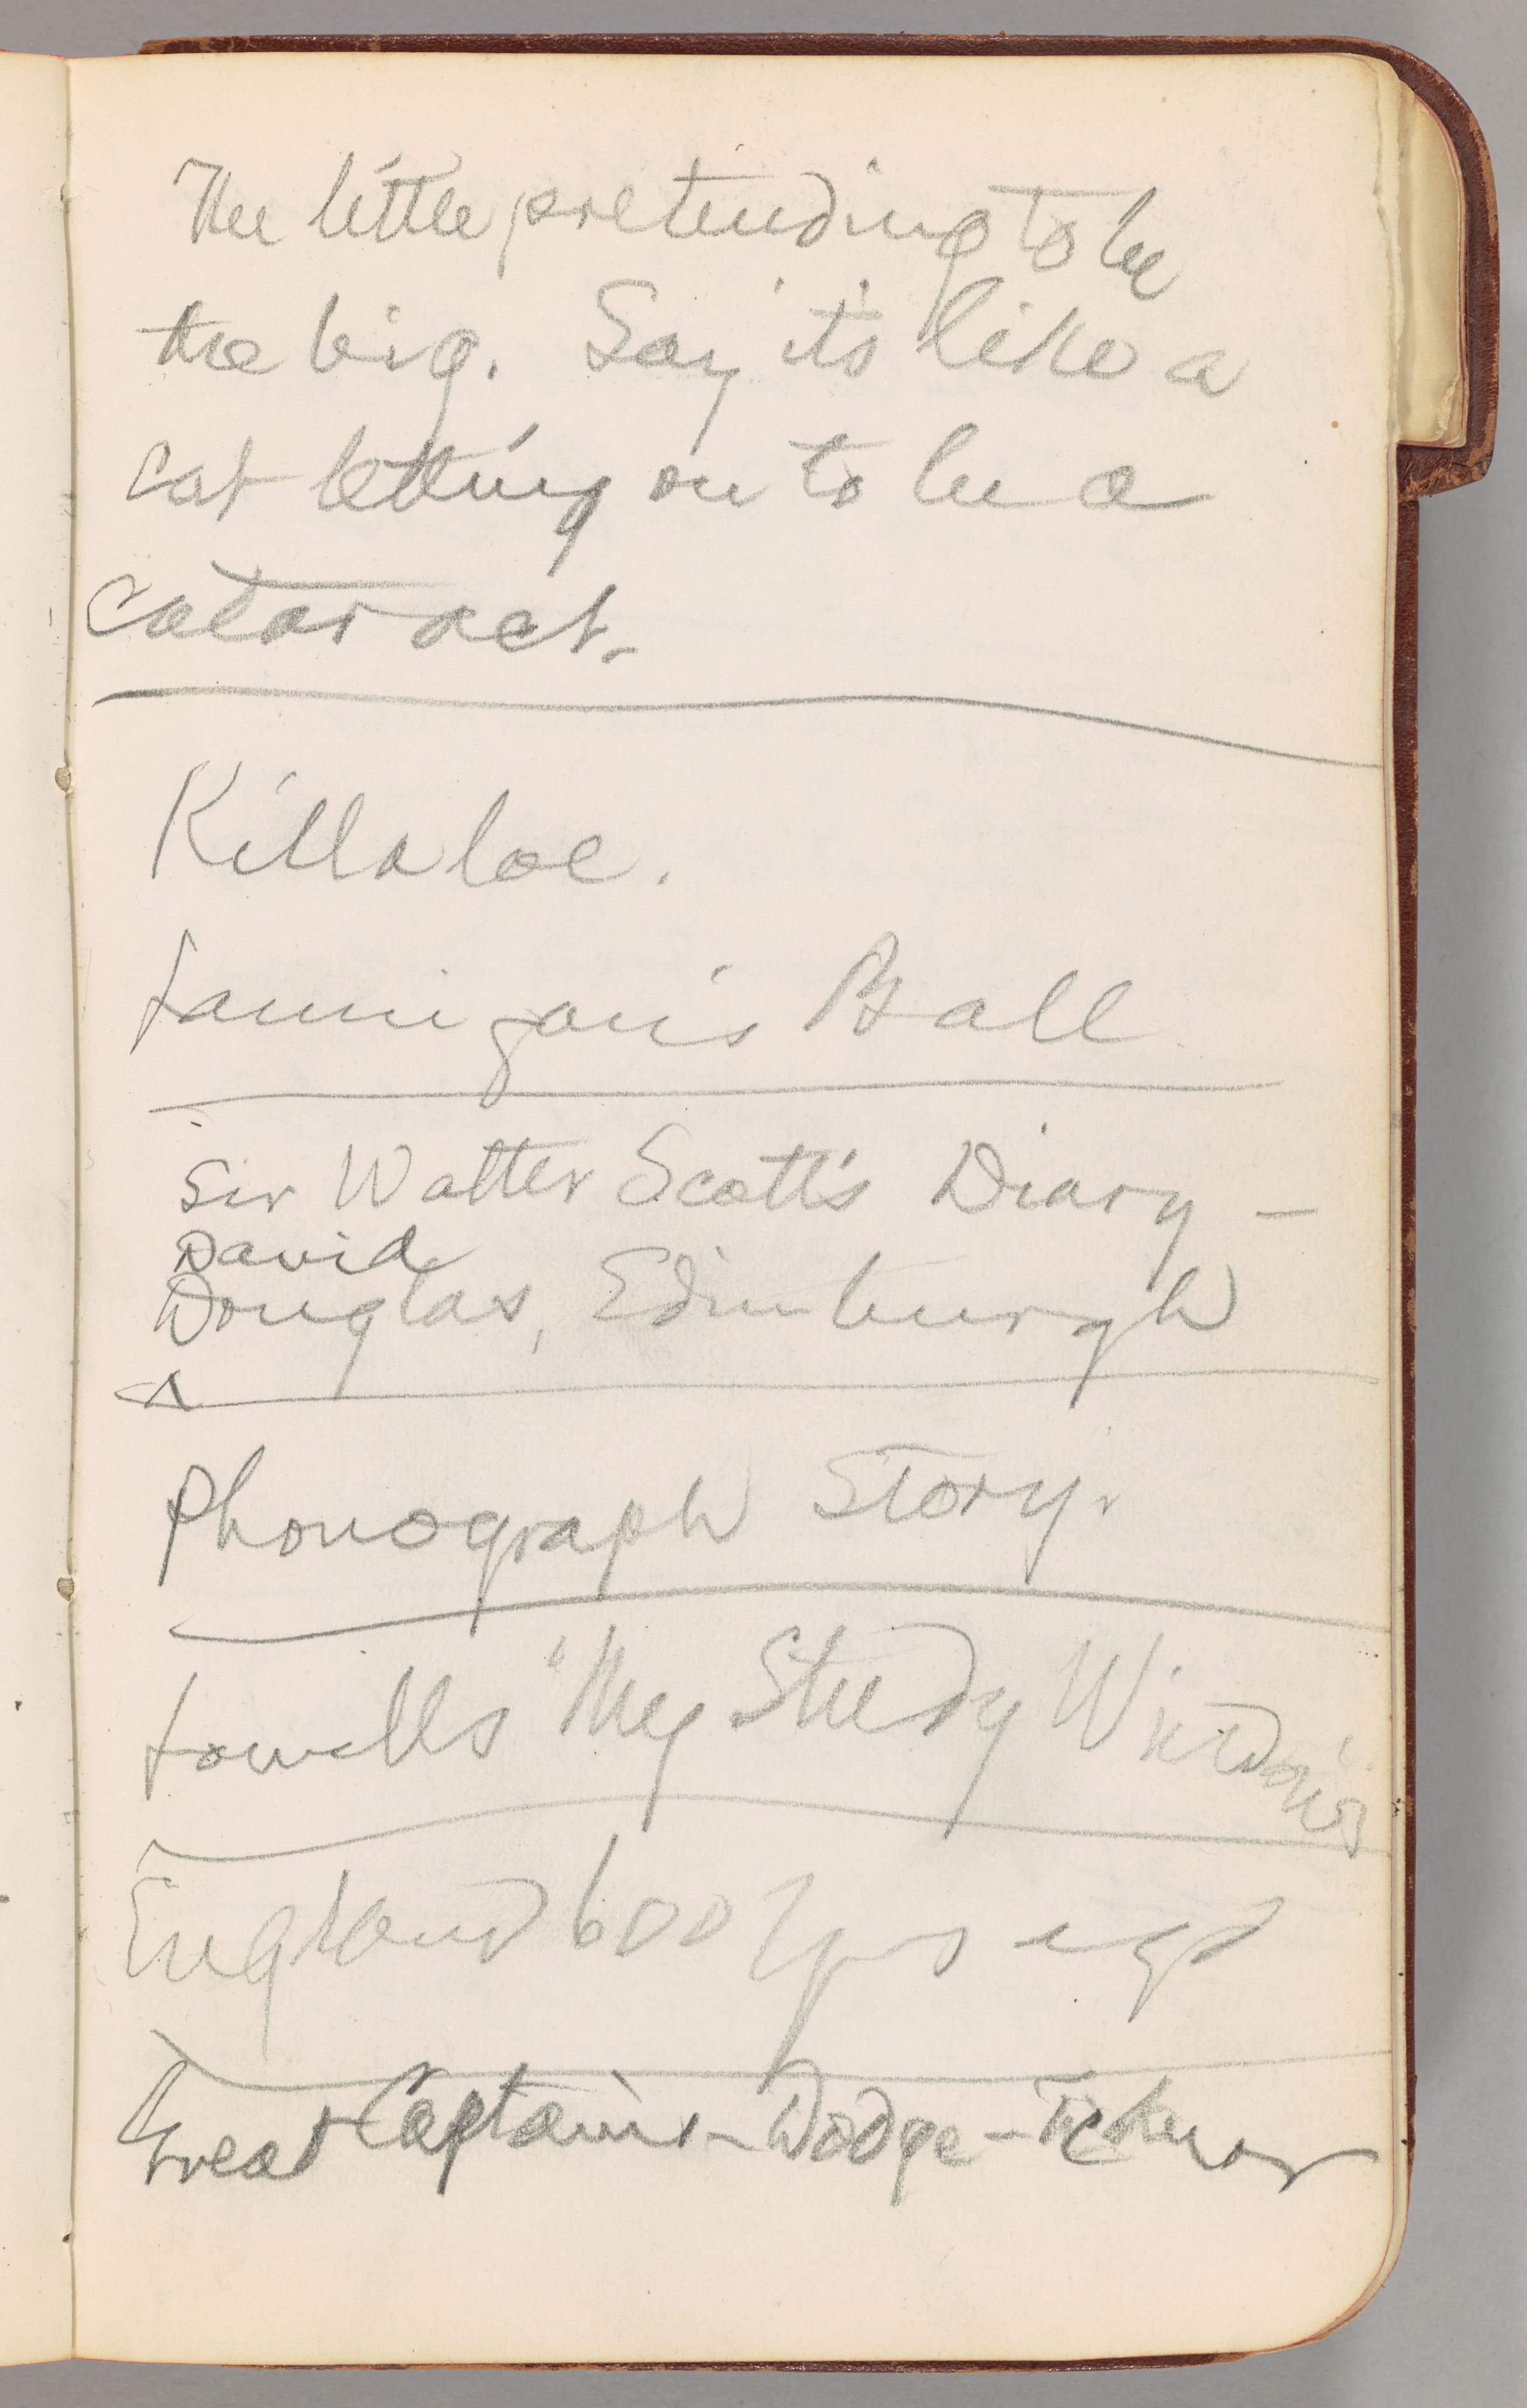 The little pretending to be
the big. Say it's like a
cat letting on to be a
cataract.
Killaloe.
Lannigan's Ball
Sir Walter Scott's Diary —
David
Douglas, Edinburgh
Phonograph Story.
Lowells "My Study Windows"
England 600 yrs ago
Great Captains — Dodge — Ticknor